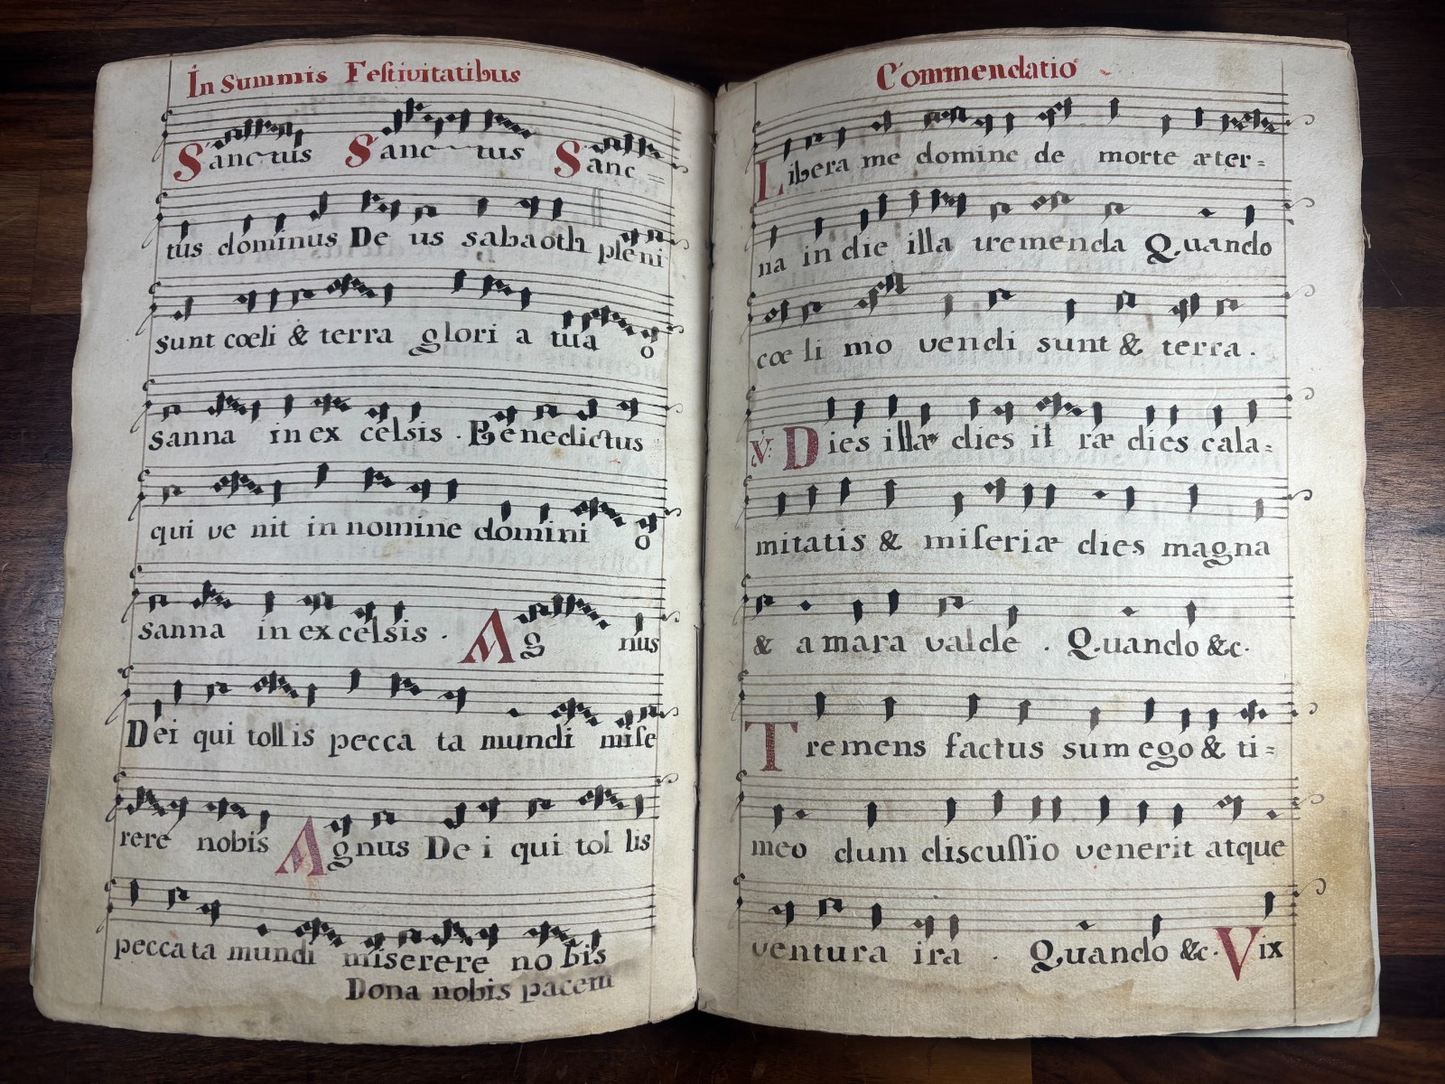 In Summis Festivitatibus
Sanctus Sanctus Sanc=
tus dominus De us sabaoth pleni
sunt cœli & terra glori a tua o
sanna in ex celsis . Benedictus
qui ve nit in nomine domini o
sanna in excelsis . Ag nus
Dei qui tollis pecca ta mundi mise
rere nobis Agnus De i qui tol lis
peccata mundi miserere no bis
Dona nobis pacem
Commendatio
Libera me domine de morte æter=
na in die illa tremenda Quando
cœ li mo vendi sunt & terra .
℣: Dies illa dies i ræ dies cala=
mitatis & miſeriæ dies magna
& amara valde . Quando &c.
Tremens factus sum ego & ti=
meo dum discuſſio venerit atque
ventura ira . Quando &c. Vix